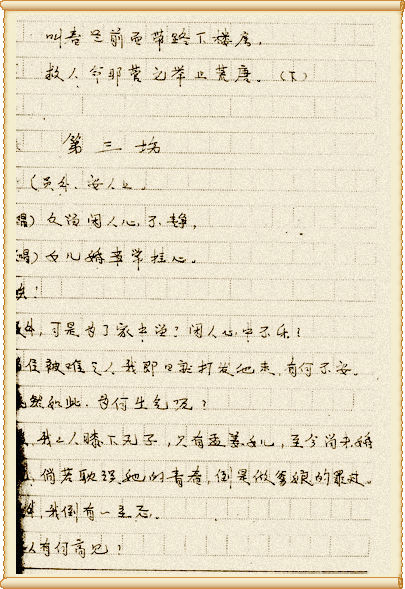 叫音是前面带路下楼房，
救人命耶营九举上荒唐。（下）
第三场
（员外、安人上）
唱）文昌闲人心不静，
唱）女儿婚事常挂心。
！
外，可是为了家中治？闲人心中不乐？
但被难之人我即日就打发他走，有何不安。
然如此，为何生气呢？
，我二人膝下无子，只有孟姜女儿，至今尚未婚
，倘若耽误她的青春，倒是做爹娘的罪过。
外，我倒有一主意。
人有何高见！